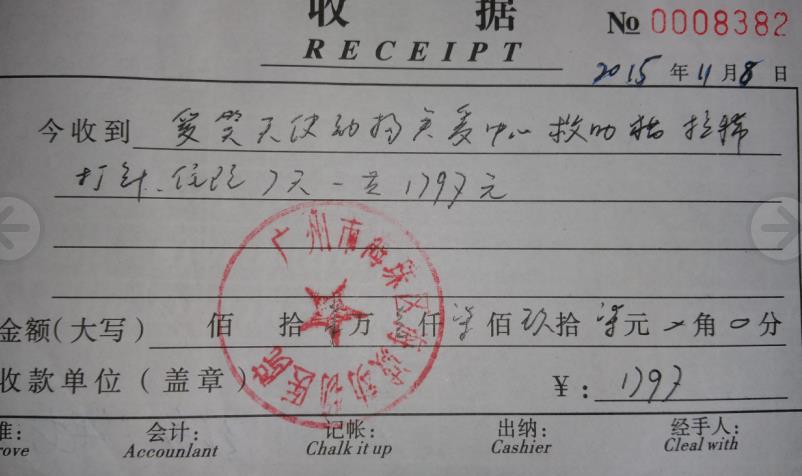 收 据
RECEIPT
№ 0008382
2015 年 11 月 8 日
今收到 爱笑天使动物关爱中心救助
打针.住院7天一共1797元
广州市海珠区 动物医院
金额(大写) 佰 拾 万 仟 柒 佰 玖 拾 柒 元 0 角 0 分
收款单位(盖章) ¥: 1797
准: 会计: 记帐: 出纳: 经手人:
rove Accounlant Chalk it up Cashier Cleal with